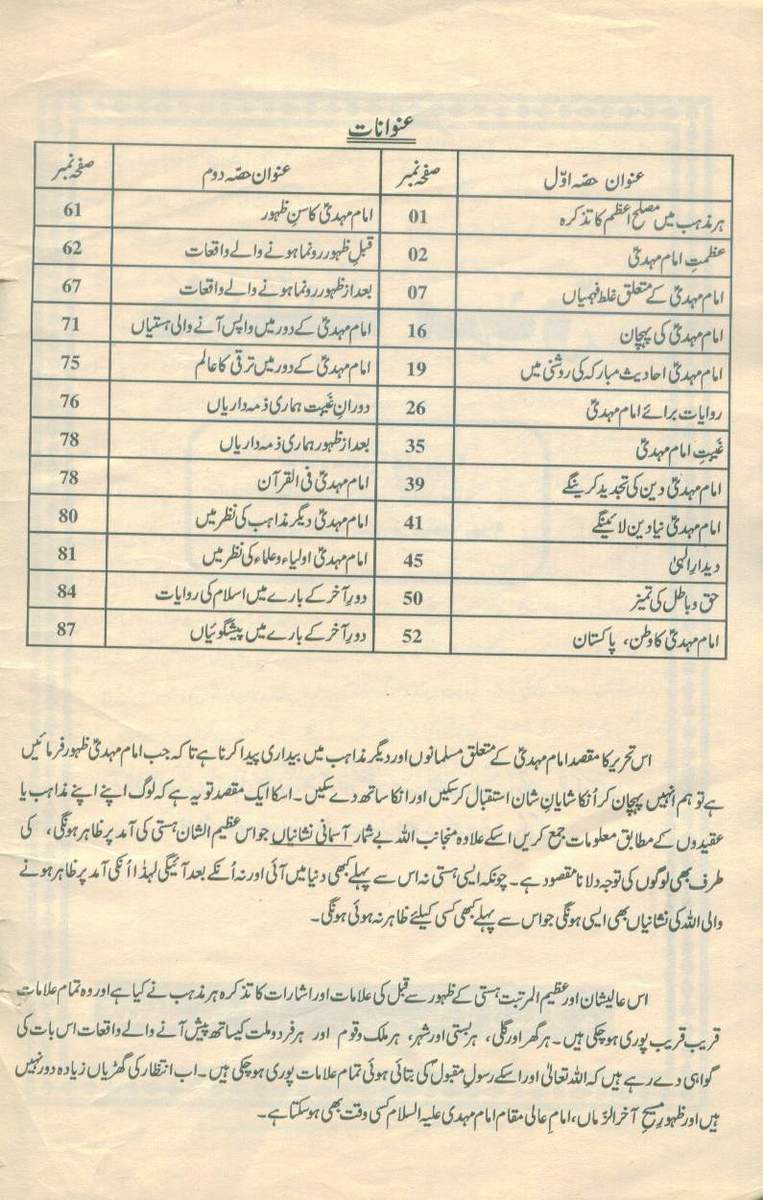 عنوانات
عنوان حصّہ اوّل صفحہ نمبر عنوان حصّہ دوم صفحہ نمبر
ہر مذہب میں مصلحِ اعظم کا تذکرہ 01 امام مہدیؑ کا سنِ ظہور 61
عظمتِ امام مہدیؑ 02 قبلِ ظہور رونما ہونے والے واقعات 62
امام مہدیؑ کے متعلق غلط فہمیاں 07 بعد از ظہور رونما ہونے والے واقعات 67
امام مہدیؑ کی پہچان 16 امام مہدیؑ کے دور میں واپس آنے والی ہستیاں 71
امام مہدیؑ احادیث مبارکہ کی روشنی میں 19 امام مہدیؑ کے دور میں ترقی کا عالم 75
روایات برائے امام مہدیؑ 26 دورانِ غَیبت ہماری ذمہ داریاں 76
غَیبتِ امام مہدیؑ 35 بعد از ظہور ہماری ذمہ داریاں 78
امام مہدیؑ دین کی تجدید کرینگے 39 امام مہدیؑ فی القرآن 78
امام مہدیؑ نیا دین لائینگے 41 امام مہدیؑ دیگر مذاہب کی نظر میں 80
دیدارِ الہیٰ 45 امام مہدیؑ اولیاء و علماء کی نظر میں 81
حق و باطل کی تمیز 50 دورِ آخر کے بارے میں اسلام کی روایات 84
امام مہدیؑ کا وطن، پاکستان 52 دورِ آخر کے بارے میں پیشگوئیاں 87
اس تحریر کا مقصد امام مہدیؑ کے متعلق مسلمانوں اور دیگر مذاہب میں بیداری پیدا کرنا ہے تا کہ جب امام مہدیؑ ظہور فرمائیں
ہے تو ہم انہیں پہچان کر اُنکا شایانِ شان استقبال کر سکیں اور انکا ساتھ دے سکیں۔ اسکا ایک مقصد تو یہ ہے کہ لوگ اپنے اپنے مذاہب یا
عقیدوں کے مطابق معلومات جمع کریں اسکے علاوہ منجانب اللہ بے شمار آسمانی نشانیاں جو اس عظیم الشان ہستی کی آمد پر ظاہر ہونگی، کی
طرف بھی لوگوں کی توجہ دلانا مقصود ہے۔ چونکہ ایسی ہستی نہ اس سے پہلے کبھی دنیا میں آئی اور نہ اُنکے بعد آئیگی لہذٰا اُنکی آمد پر ظاہر ہونے
والی اللہ کی نشانیاں بھی ایسی ہونگی جو اس سے پہلے کبھی کسی کیلئے ظاہر نہ ہوئی ہونگی۔
اس عالیشان اور عظیم المرتبت ہستی کے ظہور سے قبل کی علامات اور اشارات کا تذکرہ ہر مذہب نے کیا ہے اور وہ تمام علامات
قریب قریب پوری ہو چکی ہیں۔ ہر گھر اور گلی، ہر بستی اور شہر، ہر ملک و قوم اور ہر فرد و ملت کیساتھ پیش آنے والے واقعات اس بات کی
گواہی دے رہے ہیں کہ اللہ تعالیٰ اور اسکے رسولِ مقبولؐ کی بتائی ہوئی تمام علامات پوری ہو چکی ہیں۔ اب انتظار کی گھڑیاں زیادہ دور نہیں
ہیں اور ظہورِ مسیحِ آخر الزّماں، امامِ عالی مقام امام مہدی علیہ السلام کسی وقت بھی ہو سکتا ہے۔